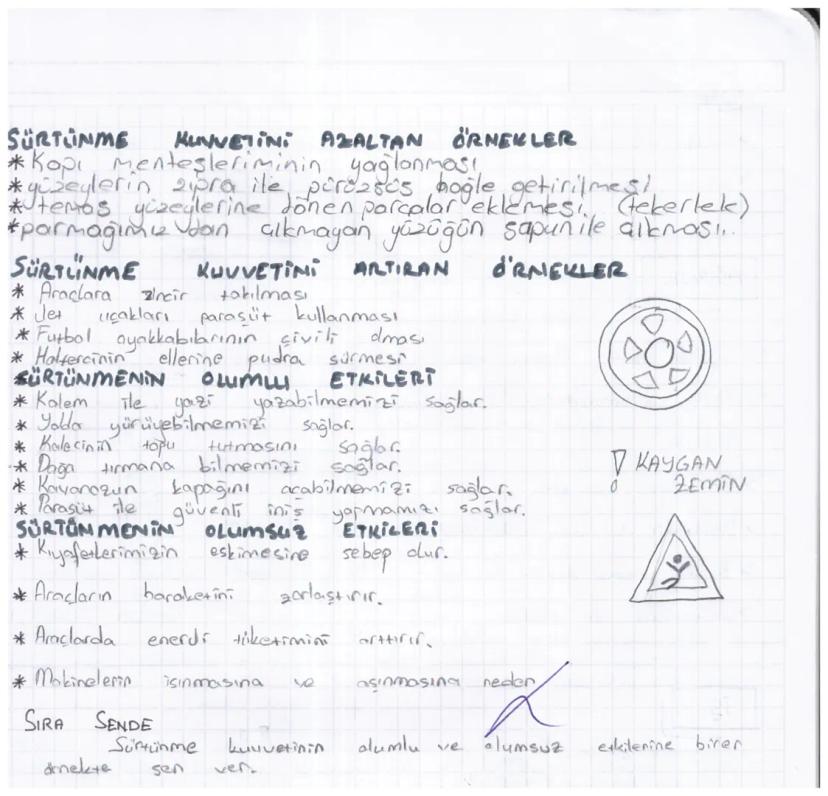 SÜRTÜNME KUVVETİNİ AZALTAN ÖRNEKLER
* Kapı menteşleriminin yağlanması
* yüzeylerin zıpra ile pürüzsüs hağle getirilmesi
* temas yüzeylerine dönen parçalar eklemesi. (tekerlek)
* parmağımızdan çıkmayan yüzüğün sapun ile çıkması..
SÜRTÜNME KUVVETİNİ ARTIRAN ÖRNEKLER
* Araçlara zincir takılması
* Jet uçakları paraşüt kullanması
* Futbol ayakkabılarının çivili olması
* Haltercinin ellerine pudra sürmesi
SÜRTÜNMENİN OLUMLU ETKİLERİ
* Kalem ile yazı yazabilmemizi sağlar.
* Yolda yürüyebilmemizi sağlar.
* Kalecinin topu tutmasını sağlar.
* Dağa tırmana bilmemizi sağlar.
* Kavanozun kapağını açabilmemizi sağlar.
* Paraşüt ile güvenli iniş yapmamızı sağlar.
! KAYGAN
ZEMİN
SÜRTÜNMENİN OLUMSUZ ETKİLERİ
* Kıyafetlerimizin eskimesine sebep olur.
* Araçların haraketini zorlaştırır.
* Araçlarda enerdi tüketimini arttırır.
* Makinelerin ısınmasına ve aşınmasına neden
SIRA SENDE
Sürtünme kuvvetinin olumlu ve olumsuz etkilerine birer
örnekte sen ver.